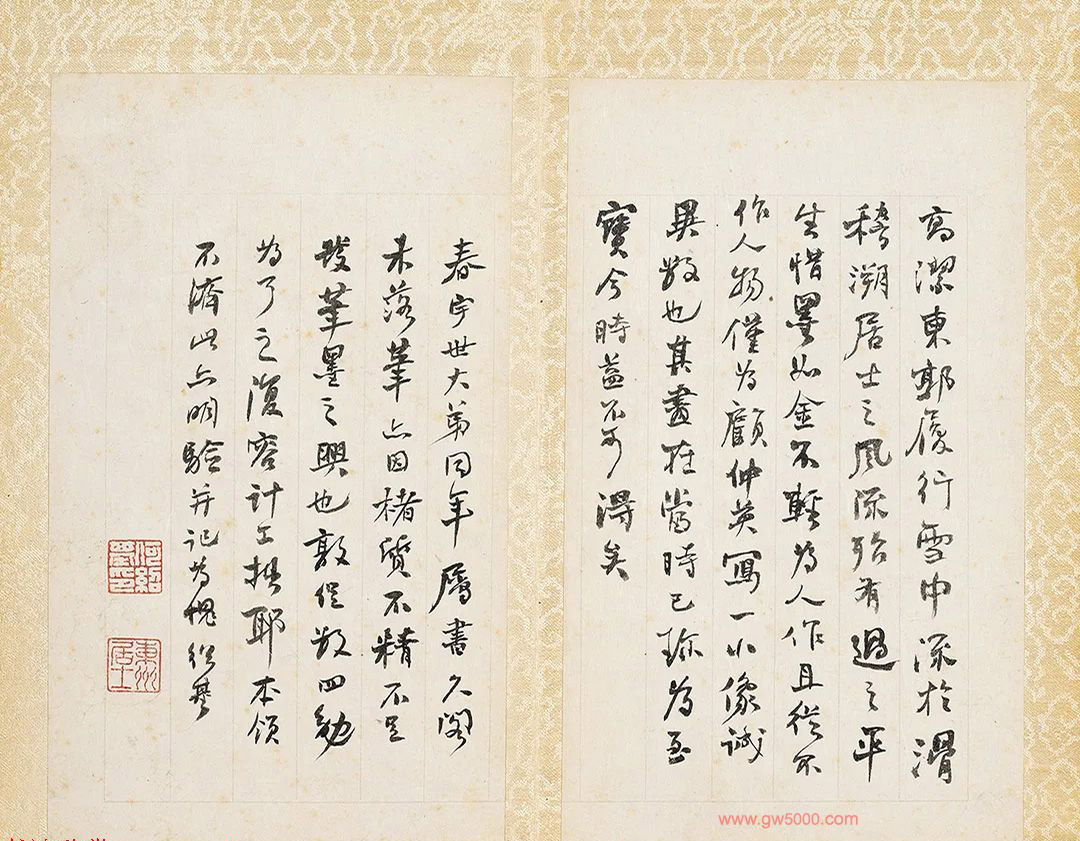 高潔東郭履行雪中深於滑
稽溯居士之風深殆有過之平
生惜墨如金不輕為人作且從不
作人物僅為顧仲英寫一小像誠
異數也其畫在當時已珍為至
寶今時益不可得矣
春宇世大弟同年屬書久閣
未落筆亦因楮質不精不足
發筆墨之興也敦促數四勉
為了之復容計工拙耶本領
不濟此亦明驗并記為愧紹基
何紹基印
東洲居士
www.gw5000.com